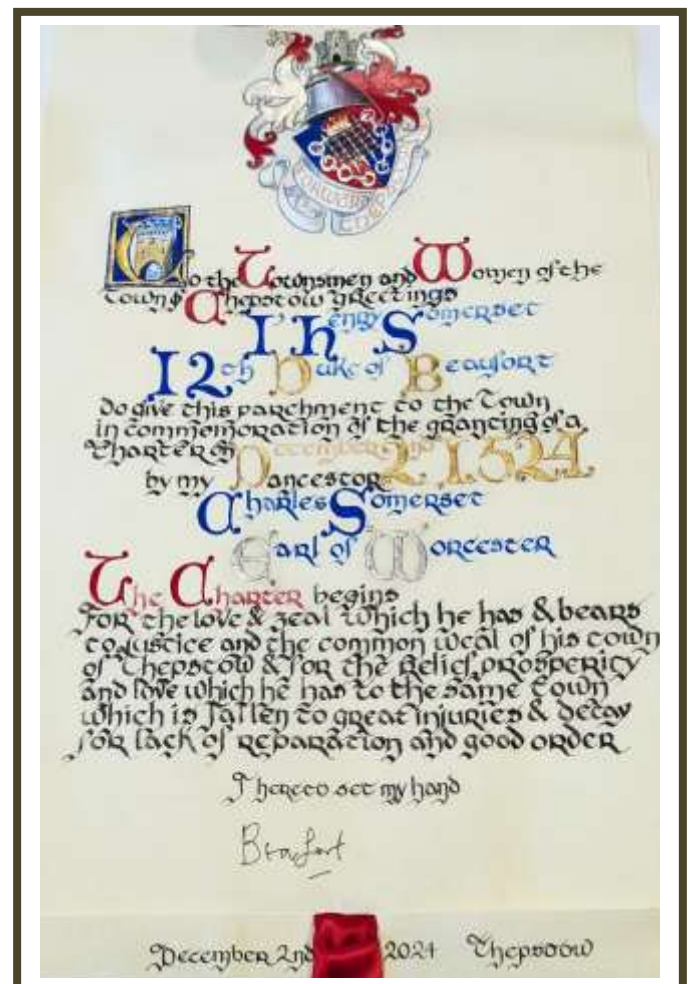 FORWARD CHEPSTOW
To the Townsmen and Women of the
town of Chepstow greetings
I Henry Somerset
12th Duke of Beaufort
Do give this parchment to the Town
in commomoration of the granting of a
Charter on December 2nd 1524
by my ancestor
Charles Somerset
Earl of Worcester
The Charter begins
For the love & zeal which he has & bears
to justice and the common weal of his town
of Chepstow & for the Relief, prosperity
and love which he has to the same town
which is fallen to great injuries & decay
for lack of reparation and good order
I hereto set my hand
Beaufort
December 2nd 2024 Chepstow